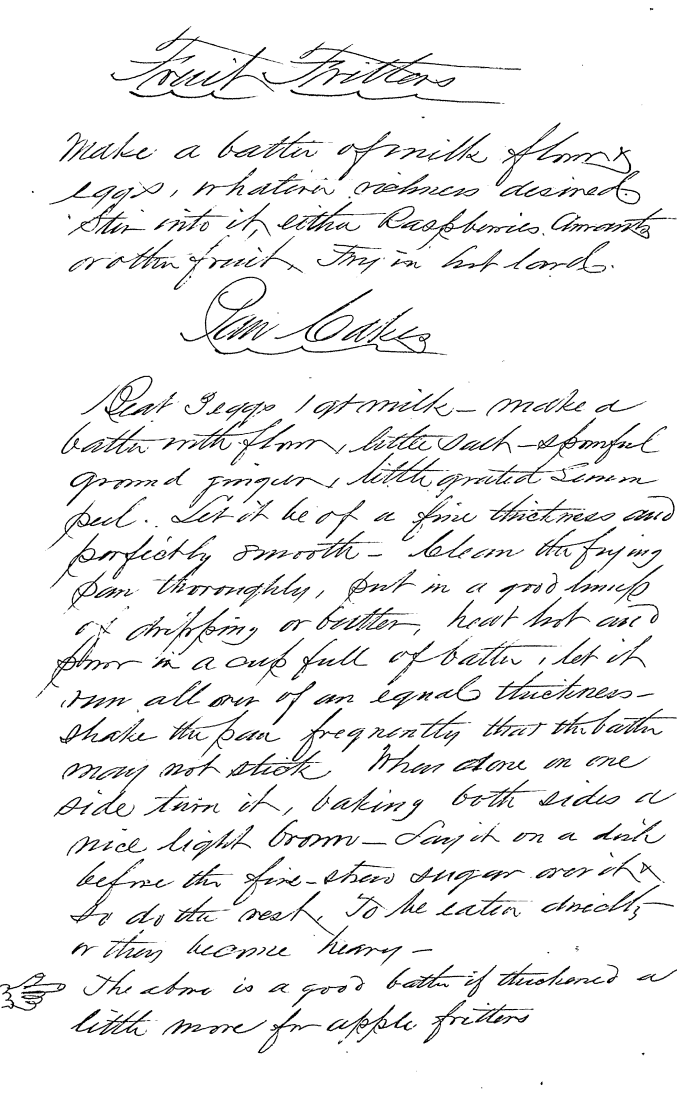 Fruit Fritters
Make a batter of milk flour &
eggs, whatever richness desired.
Stir into it either Raspberries, Currants
or other fruit. Fry in hot lard.
Pan Cakes
Beat 3 eggs 1 qt milk – make a
batter with flour, little salt – spoonful
ground ginger, little grated Lemon
peel. Let it be of a fine thickness and
perfectly smooth – Clean the frying
pan thoroughly, put in a good lump
of dripping or butter, heat hot and
pour in a cup full of batter, let it
run all over of an equal thickness –
shake the pan frequently that the batter
may not stick. When done on one
side turn it, baking both sides a
nice light brown – Lay it on a dish
before the fire – strew sugar over it &
so do the rest. To be eaten directly
or they become heavy –
The above is a good batter if thickened a
little more for apple fritters